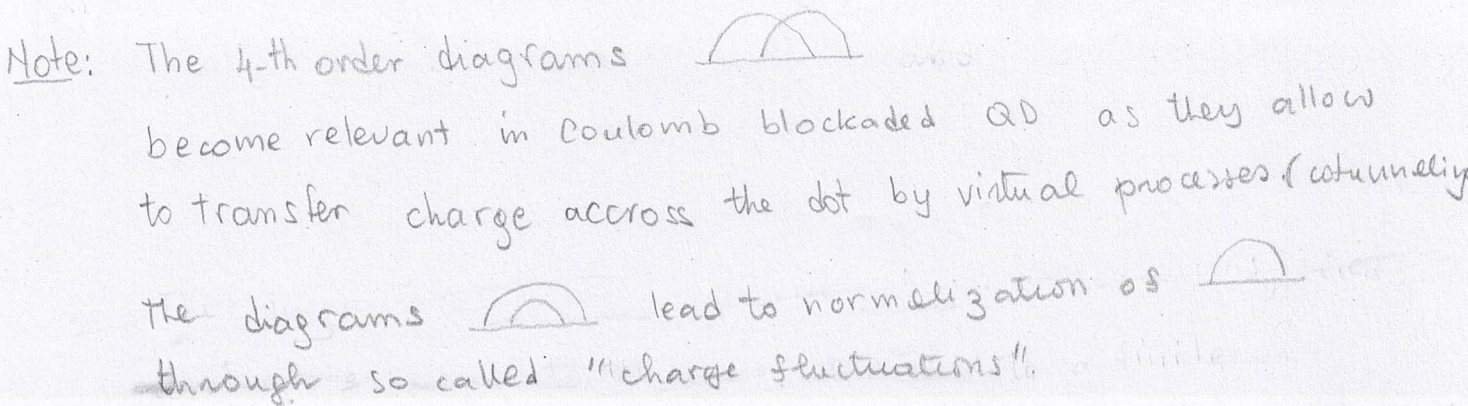 Note: The 4-th order diagrams
become relevant in Coulomb blockaded QD as they allow
to transfer charge accross the dot by virtual processes (cotunneling
The diagrams lead to normalization of
through so called "charge fluctuations".